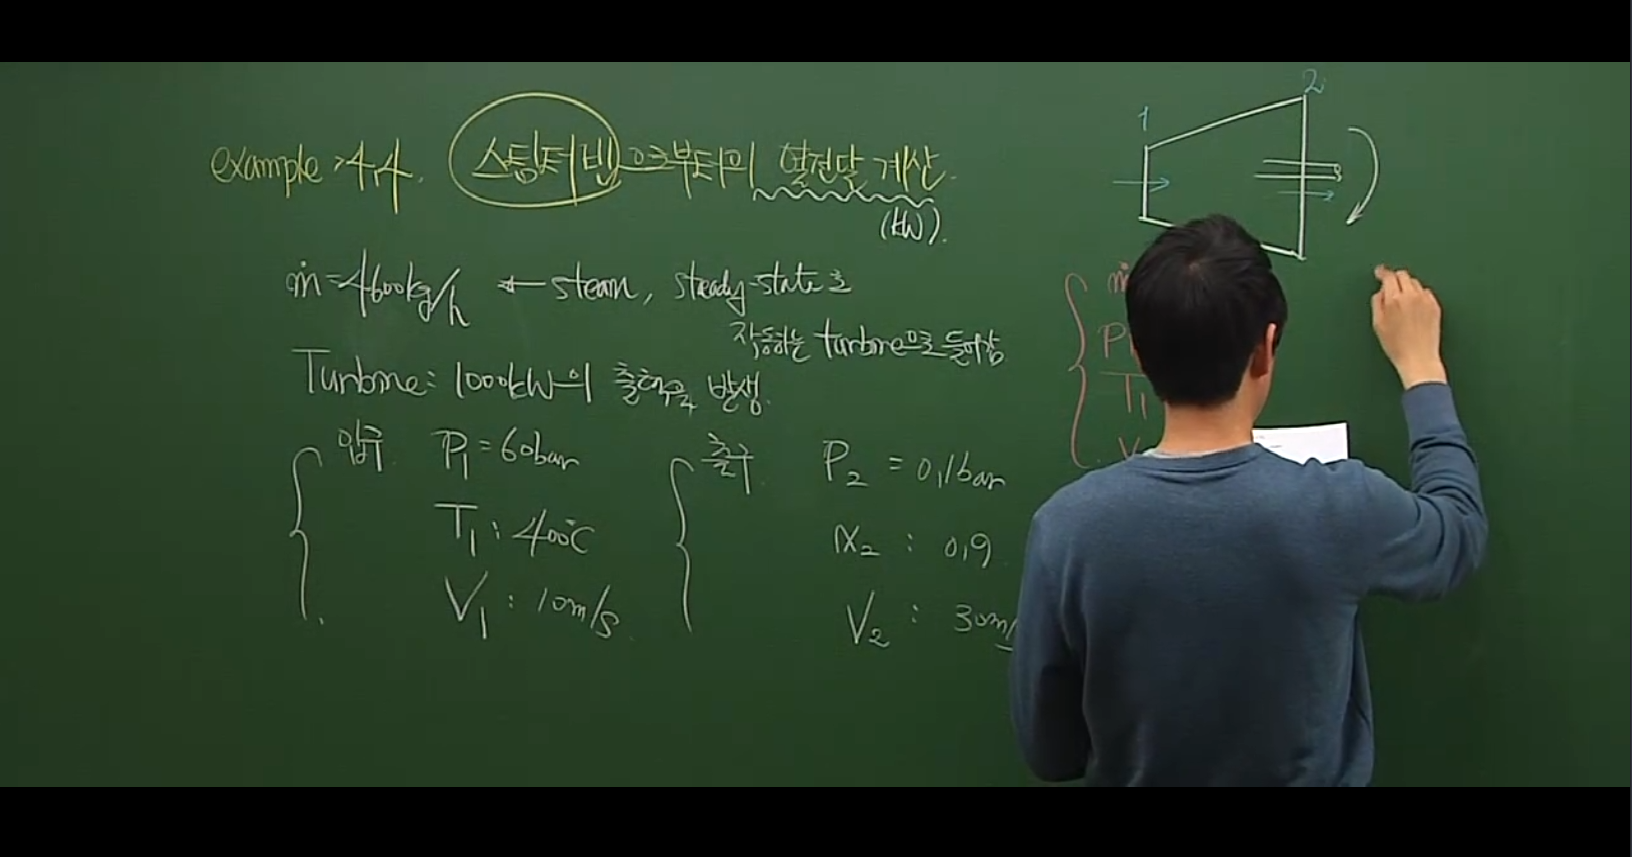 example > 4.4. 스팀터빈으로부터의 열전달 계산.
(kW).
ṁ = 4600kg/h ← steam, steady-state로
작동하는 turbine으로 들어감
Turbine: 1000kW의 출력을 발생.
입구 P₁ = 60bar
T₁ : 400°C
V₁ : 10m/s.
출구 P₂ = 0.1bar
x₂ : 0.9
V₂ : 30m/
1
2
ṁ
P₁
T₁
V